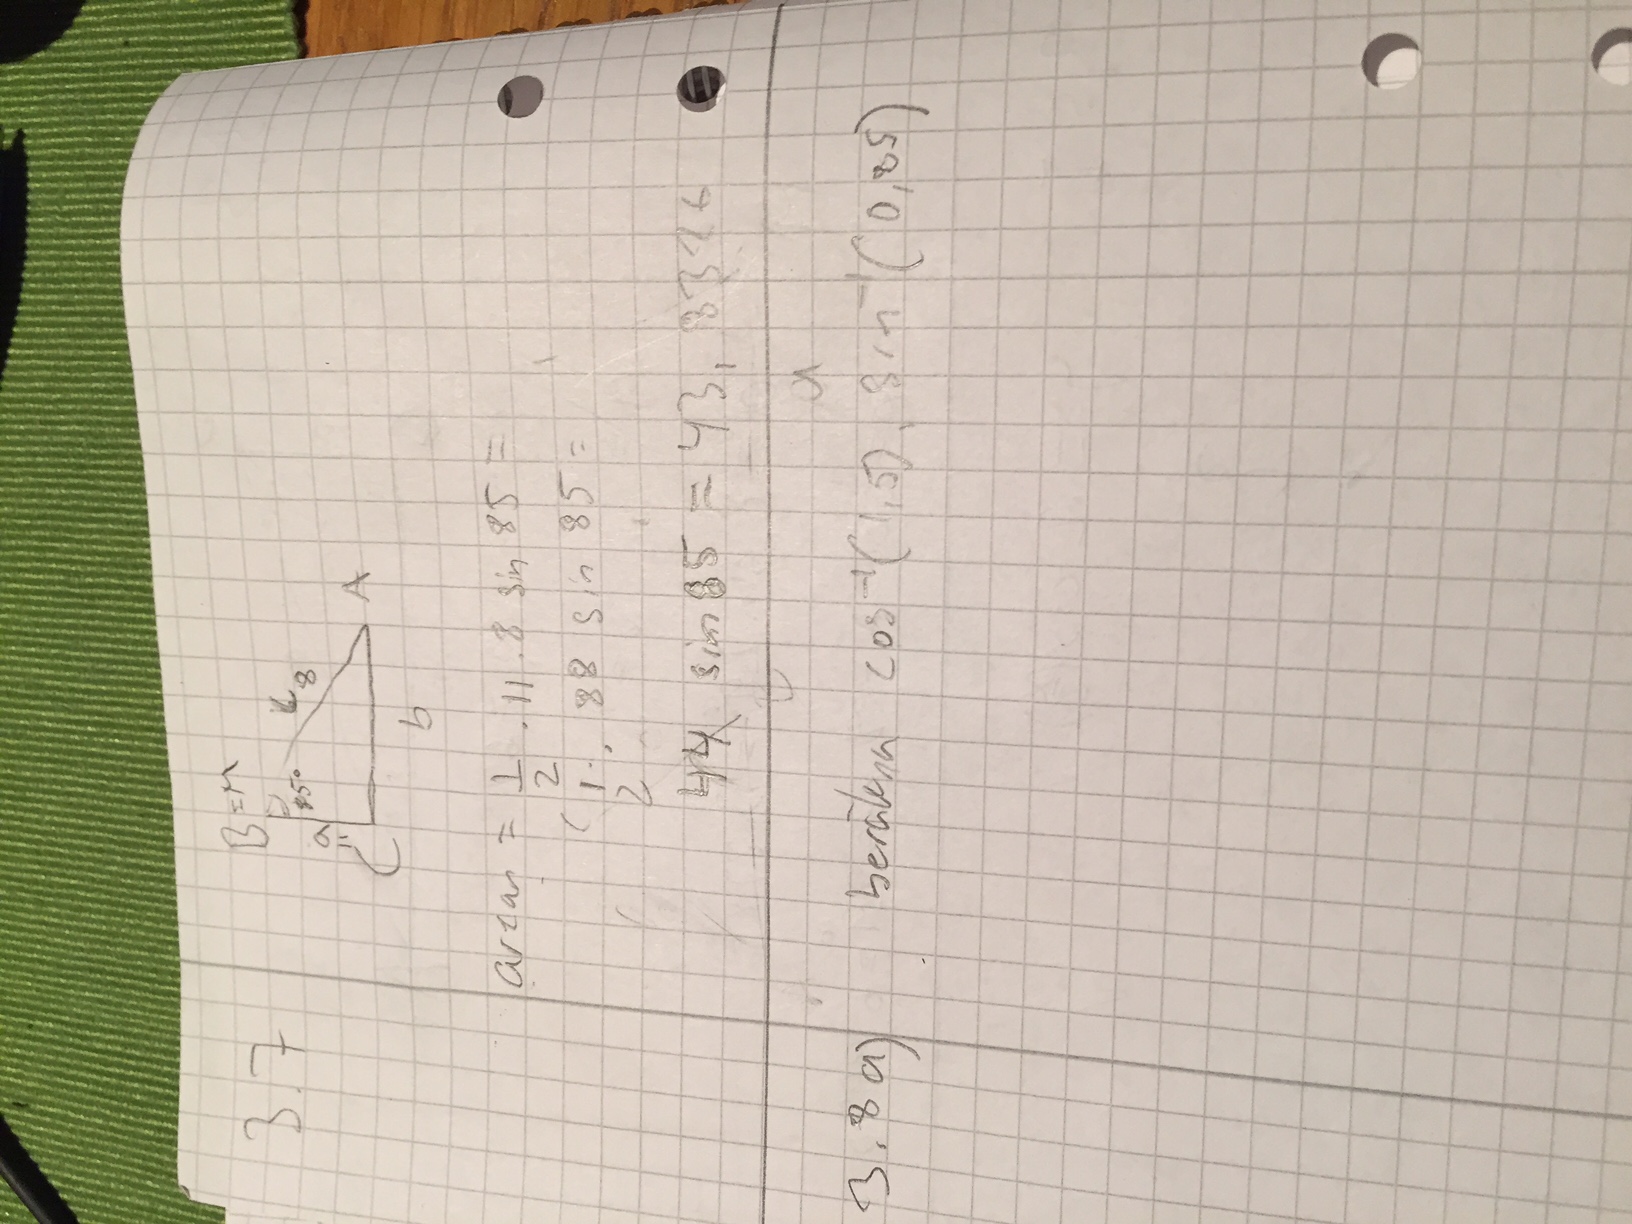 3.7
B=M
85°
a
=
C
8
A
b
arean = 1/2 · 11 · 8 sin 85 =
1/2 · 88 sin 85 =
44 sin 85 = 43,83
3.8 a) beräkna cos⁻¹(1,5), sin⁻¹(0,85)